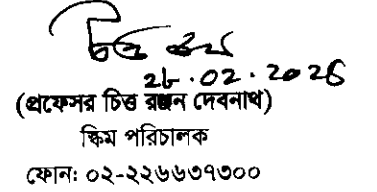 ২৮.০২.২০২৬
(প্রফেসর চিত্ত রঞ্জন দেবনাথ)
স্কিম পরিচালক
ফোন: ০২-২২৬৬৩৭৩০০